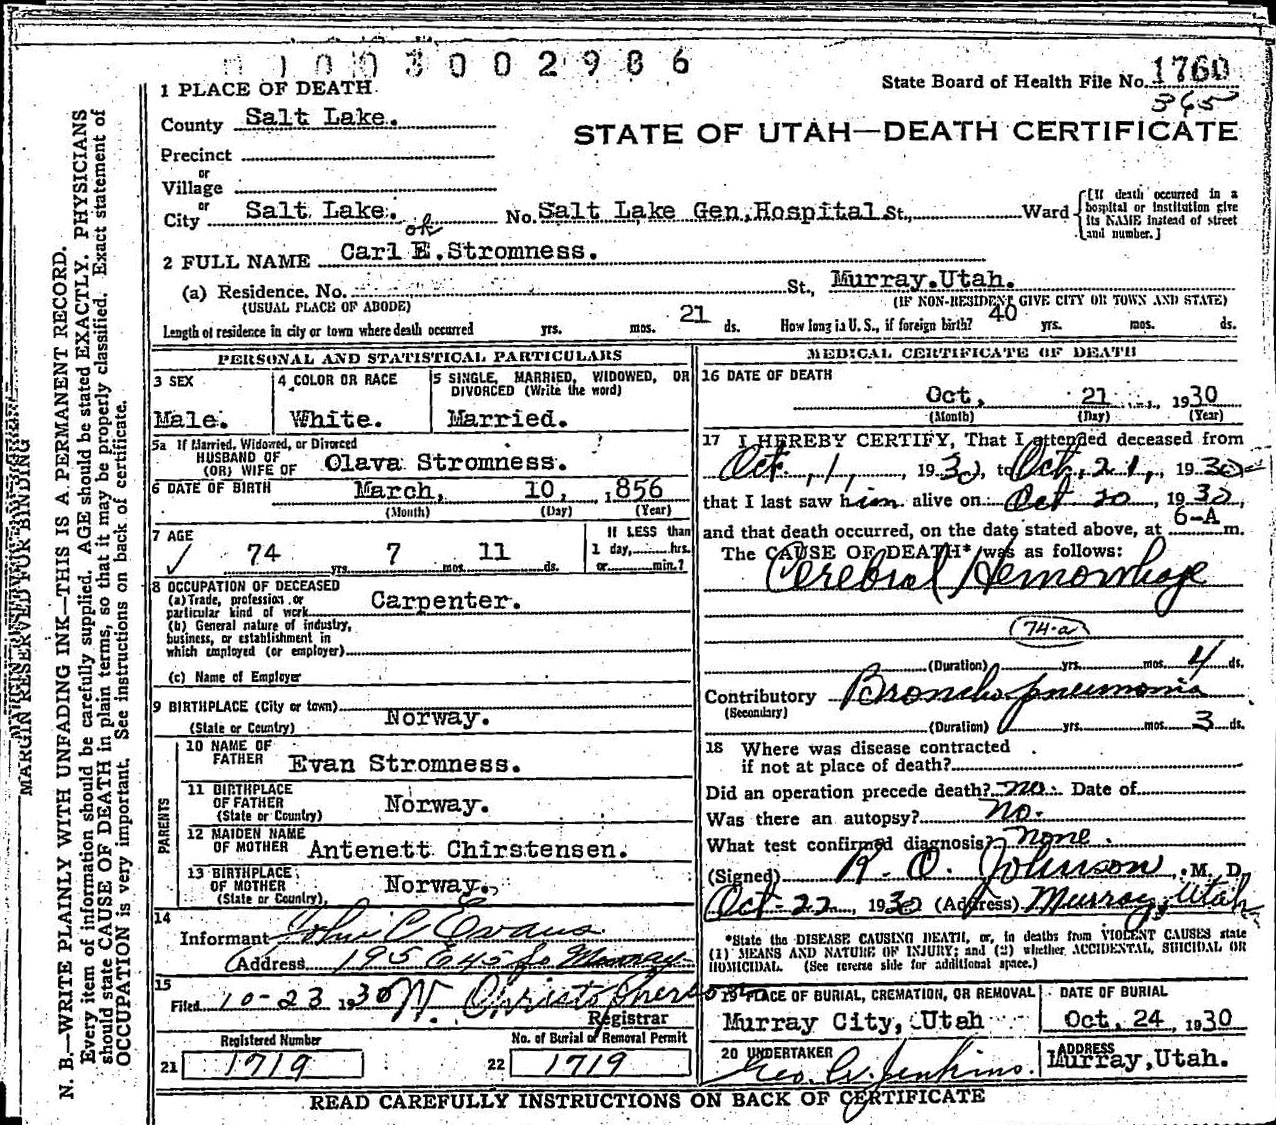 1003002986
State Board of Health File No. 1760
365
1 PLACE OF DEATH
STATE OF UTAH—DEATH CERTIFICATE
County Salt Lake.
Precinct
or
Village
or
City Salt Lake. No. Salt Lake Gen,Hospital St., Ward
[If death occurred in a hospital or institution give its NAME instead of street and number.]
ok
2 FULL NAME Carl E.Stromness.
(a) Residence. No. St., Murray.Utah.
(USUAL PLACE OF ABODE) (IF NON-RESIDENT GIVE CITY OR TOWN AND STATE)
Length of residence in city or town where death occurred yrs. mos. 21 ds. How long in U. S., if foreign birth? 40 yrs. mos. ds.
PERSONAL AND STATISTICAL PARTICULARS
3 SEX 4 COLOR OR RACE 5 SINGLE, MARRIED, WIDOWED, OR
DIVORCED (Write the word)
Male. White. Married.
5a If Married, Widowed, or Divorced
HUSBAND OF
(OR) WIFE OF Olava Stromness.
6 DATE OF BIRTH March, 10, 1856
(Month) (Day) (Year)
7 AGE IF LESS than
74 yrs. 7 mos. 11 ds. 1 day, hrs.
or min.?
8 OCCUPATION OF DECEASED
(a) Trade, profession or
particular kind of work Carpenter.
(b) General nature of industry,
business, or establishment in
which employed (or employer)
(c) Name of Employer
9 BIRTHPLACE (City or town)
(State or Country) Norway.
PARENTS
10 NAME OF
FATHER Evan Stromness.
11 BIRTHPLACE
OF FATHER
(State or Country) Norway.
12 MAIDEN NAME
OF MOTHER Antenett Chirstensen.
13 BIRTHPLACE
OF MOTHER
(State or Country) Norway.
14
Informant John C Evans
(Address 195 E 45 So Murray
15
Filed 10-23 1930 W. Christophers
Registrar
Registered Number No. of Burial or Removal Permit
21 1719 22 1719
MEDICAL CERTIFICATE OF DEATH
16 DATE OF DEATH
Oct, 21 1930
(Month) (Day) (Year)
17 I HEREBY CERTIFY, That I attended deceased from
Oct. 1, 1930, to Oct, 21, 1930
that I last saw him alive on Oct 20, 1930,
and that death occurred, on the date stated above, at 6-A m.
The CAUSE OF DEATH* was as follows:
Cerebral Hemorrhage
74-a
(Duration) yrs. mos. 4 ds.
Contributory Broncho pneumonia
(Secondary)
(Duration) yrs. mos. 3 ds.
18 Where was disease contracted
if not at place of death?
Did an operation precede death? no. Date of
Was there an autopsy? no.
What test confirmed diagnosis? none.
(Signed) R. O. Johnson, M. D.
Oct-22, 1930 (Address) Murray, Utah
*State the DISEASE CAUSING DEATH, or, in deaths from VIOLENT CAUSES state
(1) MEANS AND NATURE OF INJURY; and (2) whether ACCIDENTAL, SUICIDAL OR
HOMICIDAL. (See reverse side for additional space.)
19 PLACE OF BURIAL, CREMATION, OR REMOVAL DATE OF BURIAL
Murray City, Utah Oct, 24, 1930
20 UNDERTAKER ADDRESS
Geo. W. Jenkins. Murray,Utah.
READ CAREFULLY INSTRUCTIONS ON BACK OF CERTIFICATE
MARGIN RESERVED FOR BINDING
N. B.—WRITE PLAINLY WITH UNFADING INK—THIS IS A PERMANENT RECORD.
Every item of information should be carefully supplied. AGE should be stated EXACTLY. PHYSICIANS
should state CAUSE OF DEATH in plain terms, so that it may be properly classified. Exact statement of
OCCUPATION is very important. See instructions on back of certificate.